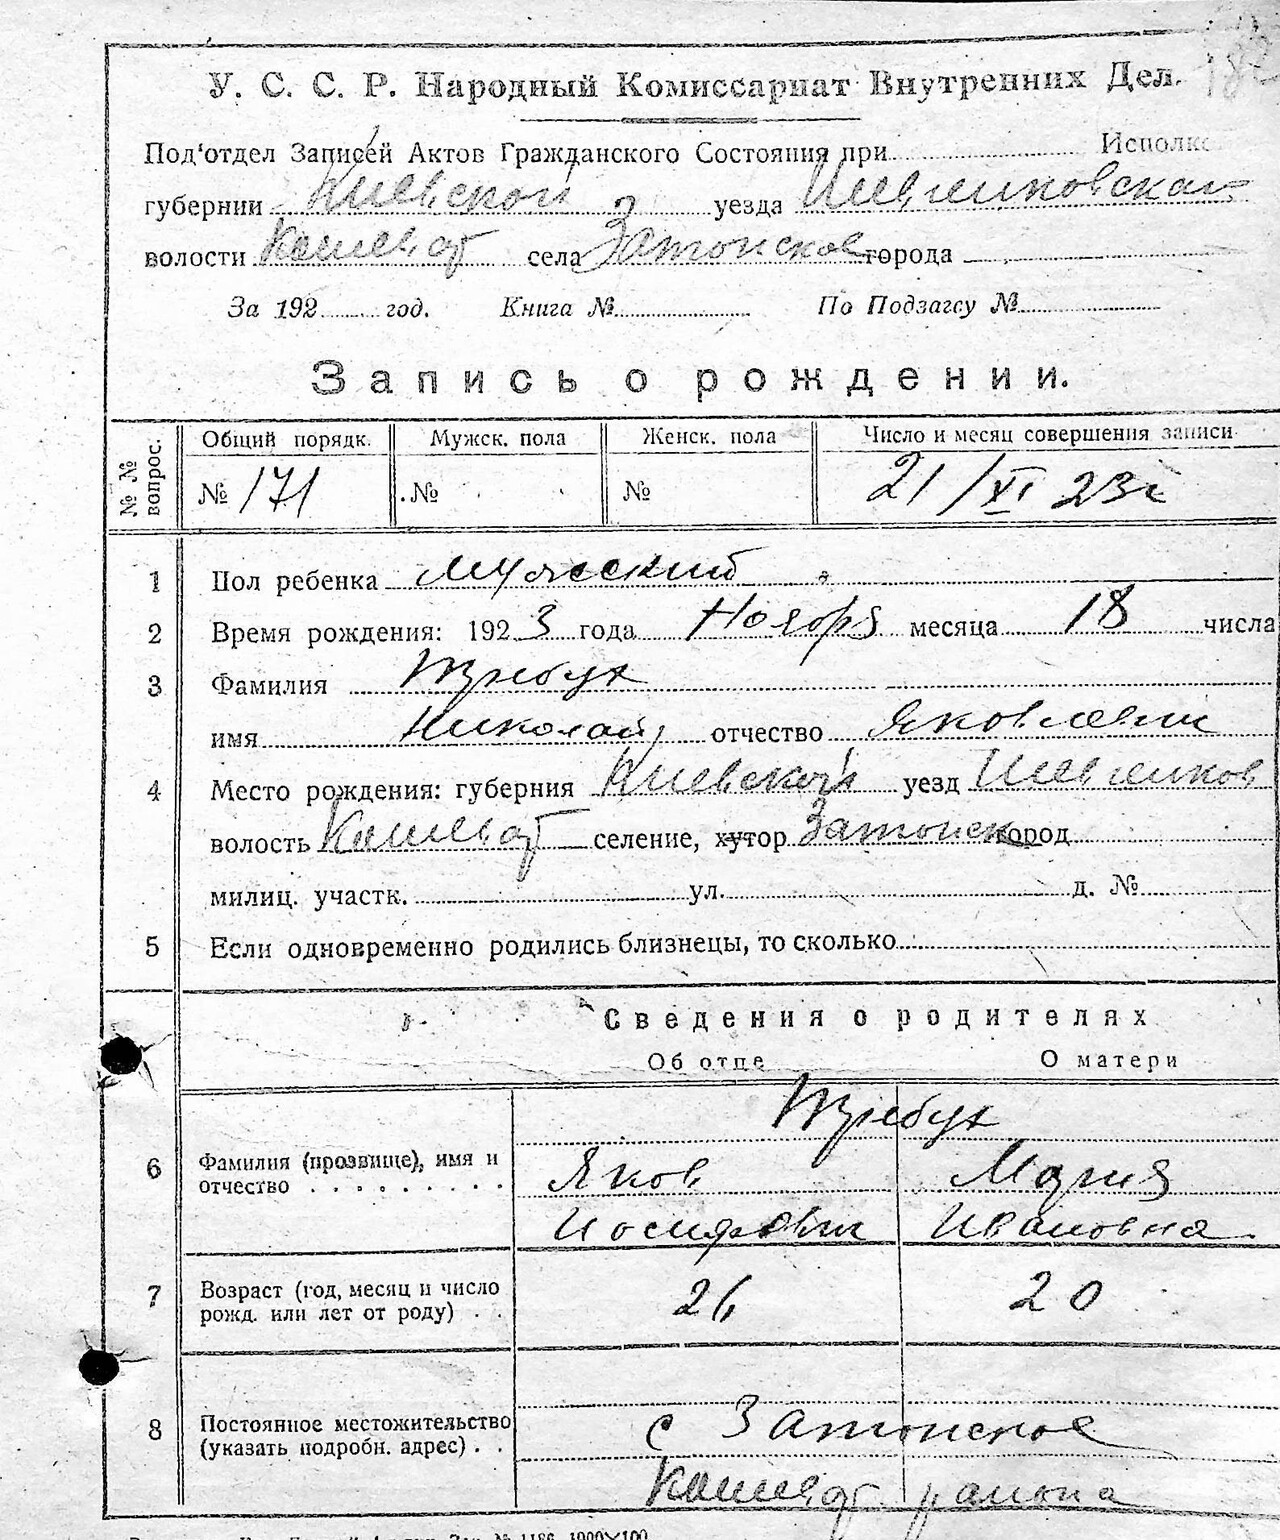 182
У. С. С. Р. Народный Комиссариат Внутренних Дел.
Под'отдел Записей Актов Гражданского Состояния при Исполк
губернии Киевской уезда Шевченковская
волости Кошеват села Затонское города
За 192 год. Книга № По Подзагсу №
Запись о рождении.
№ № вопрос. Общий порядк. Мужск. пола Женск. пола Число и месяц совершения записи
№ 171 № № 21/XI 23 г
1 Пол ребенка мужеский
2 Время рождения: 1923 года Ноября месяца 18 числа
3 Фамилия
имя Николай отчество Яковлевич
4 Место рождения: губерния Киевской уезд Шевченков
волость Кошеват селение, хутор Затонск город
милиц. участк. ул. д. №
5 Если одновременно родились близнецы, то сколько
Сведения о родителях
Об отце О матери
6 Фамилия (прозвище), имя и
отчество
Яков Мария
Иосифович Ивановна
7 Возраст (год, месяц и число
рожд. или лет от роду) 26 20
8 Постоянное местожительство
(указать подробн. адрес)
с Затонское
Кошеват района